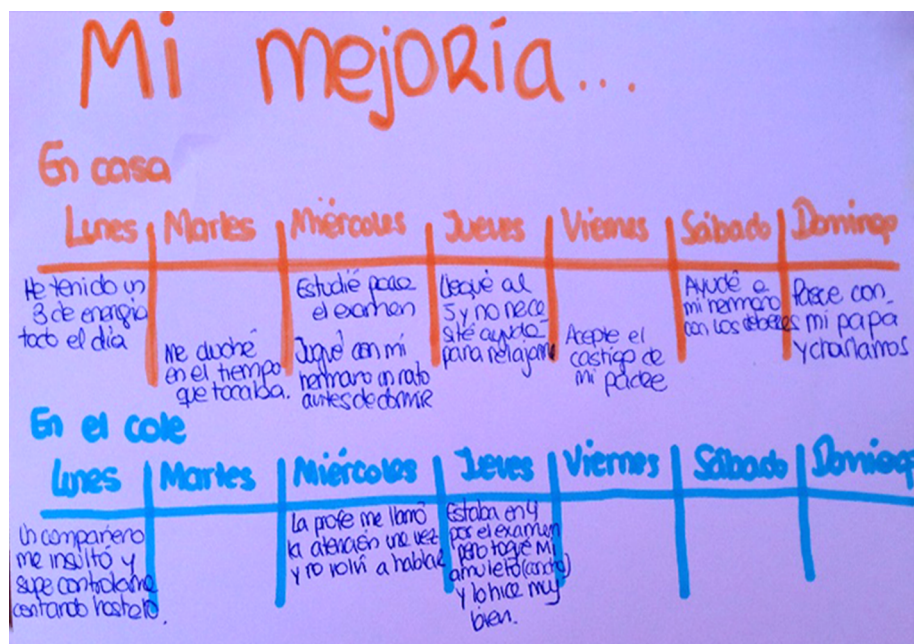 Mi mejoría...
En casa
Lunes Martes Miércoles Jueves Viernes Sábado Domingo
He tenido un
3 de energia
todo el día
Me duché
en el tiempo
que tocaba.
Estudié para
el examen
Jugué con mi
hermano un rato
antes de dormir
Llegué al
5 y no nece
sité ayuda
para relajarme
Acepte el
castigo de
mi padre
Ayudé a
mi hermano
con los deberes
Paseé con
mi papa
y charlamos
En el cole
Lunes Martes Miércoles Jueves Viernes Sábado Domingo
Un compañero
me insultó y
supe controlarme
contando hasta 10.
La profe me llamó
la atención una vez
y no volví a hablar
Estaba en 4
por el examen
pero toqué mi
amuleto
y lo hice muy
bien.